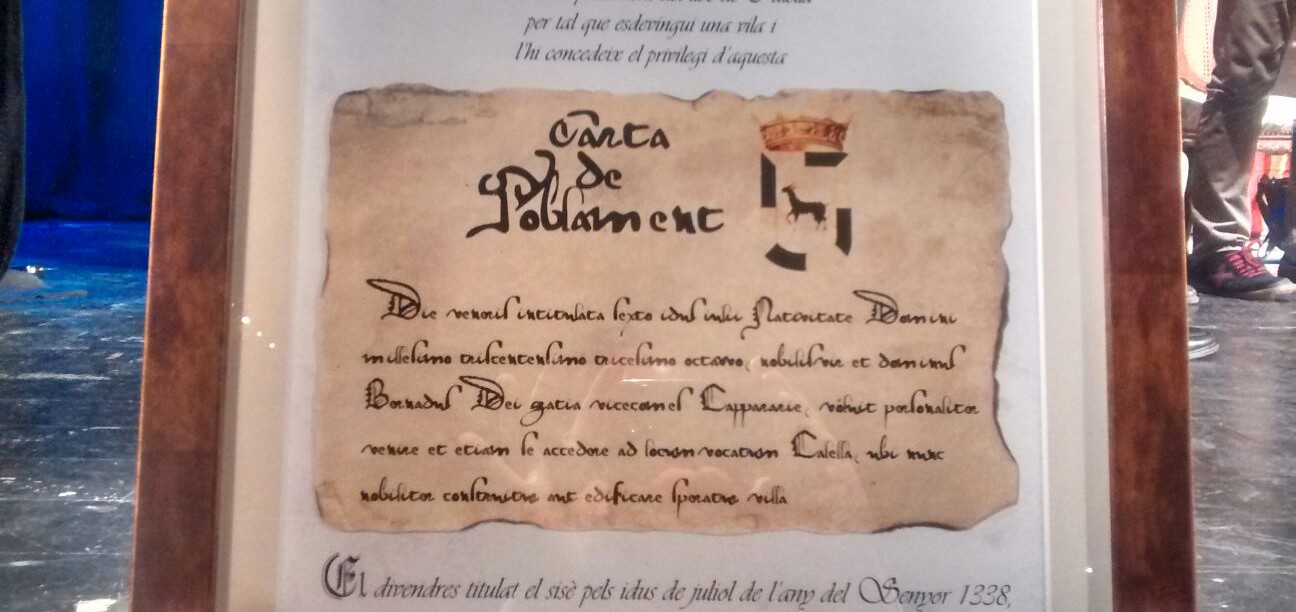 per tal que esdevingui una vila i
l'hi concedeix el privilegi d'aquesta
Carta
de
Poblament
Die veneris intitulata sexto idus iulii Natovitate Domini
millesimo trilcentensimo tricesimo octavo, nobilis vir et dominus
Bernadus Dei gatia vicecomes Cappararie, voluit personaliter
venire et etiam se accedere ad locum vocatum Calella, ubi nunc
nobiliter construitur aut edificare speratur villa
El divendres titulat el sisè pels idus de juliol de l'any del Senyor 1338,